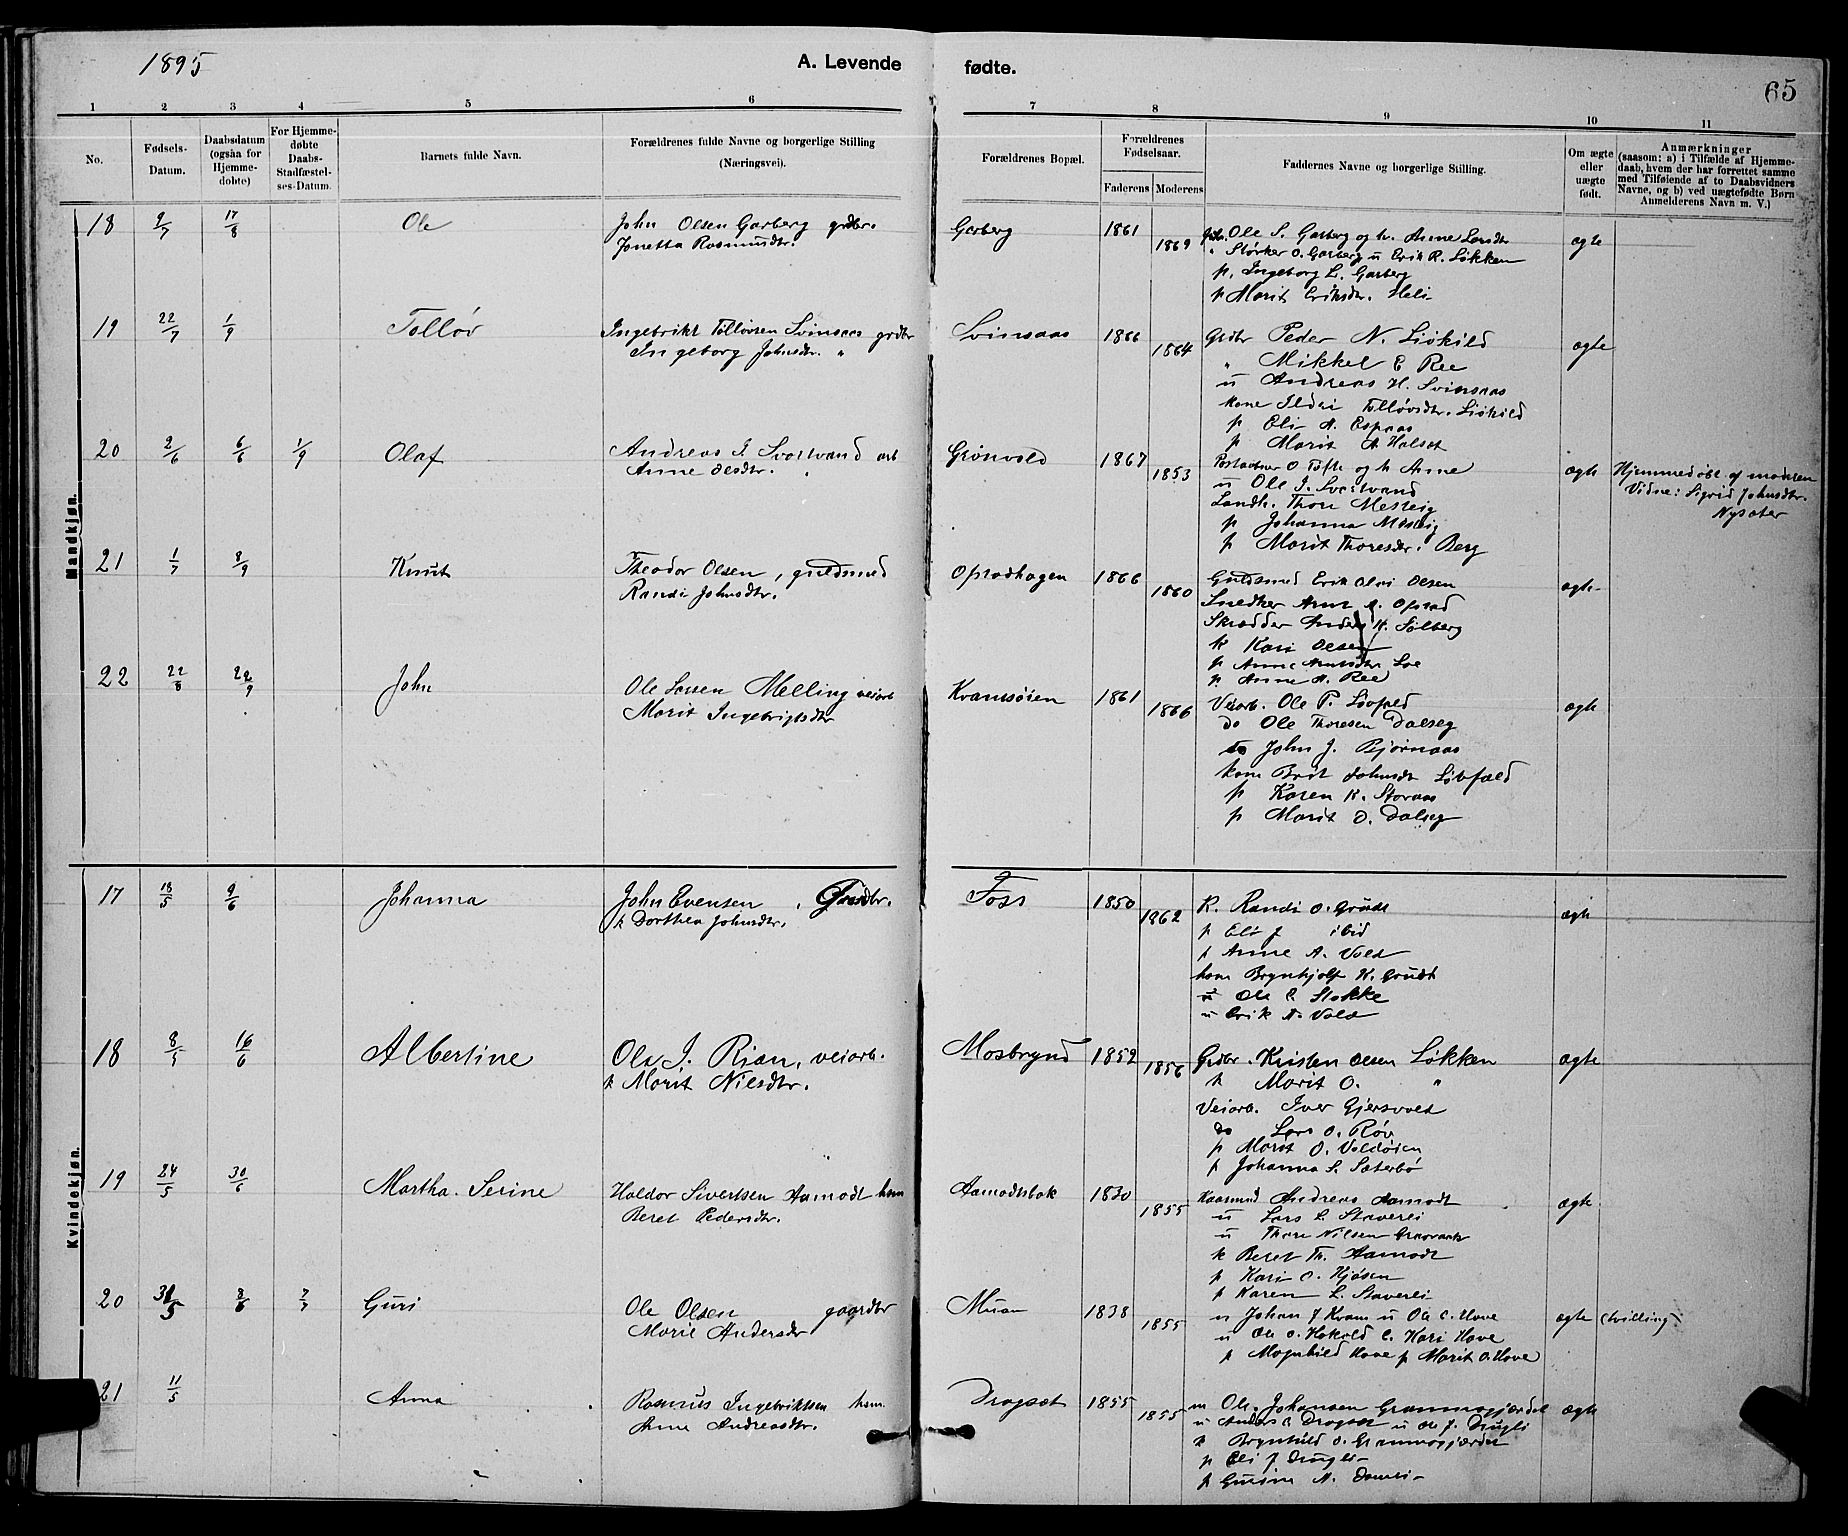 1895
A. Levende fødte.
65
1 2 3 4 5 6 7 8 9 10 11
No.
Fødsels-Datum.
Daabsdatum (ogsaa for Hjemme-døbte)
For Hjemme-døbte Daabs-Stadfæstel-ses-Datum.
Barnets fulde Navn.
Forældrenes fulde Navne og borgerlige Stilling (Næringsvei).
Forældrenes Bopæl.
Forældrenes Fødselsaar.
Faderens Moderens
Faddernes Navne og borgerlige Stilling.
Om ægte eller uægte født.
Anmærkninger (saasom: a) i Tilfælde af Hjemme-daab, hvem der har forrettet samme med Tilføiende af to Daabsvidners Navne, og b) ved uægtefødte Børn Anmelderens Navn m. V.)
Mandkjøn.
18 2/7 17/8 Ole
John Olsen Garberg grdbr.
Jonetta Rasmusdtr.
Garberg 1861 1869
Grdbr. Ole S. Garberg og h. Anne Larsdtr
" Størker O. Garberg u Erik R. Løkken
p. Ingeborg L. Garberg
p Marit Eriksdtr. Heli
ægte
19 22/7 1/9 Tolløv
Ingebrikt Tolløvsen Svinsaas grdbr
Ingeborg Johnsdtr. "
Svinsaas 1866 1864
Grdbr Peder N. Liökild
" Mikkel E Ree
u Andreas H. Svinsaas
kone Ildri Tolløvsdtr. Liökild
p Eli A. Espaas
p Marit A Halset
ægte
20 2/6 6/6 1/9 Olaf
Andreas I Svartvand arb
Anne Olsdtr. "
Grønvold 1867 1853
Postaabner O Tofte og h Anne
u Ole I. Svartvand
Landh. Thore Mesleig
p Johanna Mesleig
p Marit Thoresdtr. Berg
ægte
Hjemmedøbt af modren
Vidne: Sigrid Johnsdtr.
Nysæter
21 1/7 8/9 Knut
Theodor Olsen, guldsmed
Randi Johnsdtr.
Opradhagen 1866 1860
Guldsmed Erik Olai Olsen
Snedker Arnt A. Opsad
Skrædder Anders K. Solberg
k Kari Olsen
p Anne Arntsdtr Loe
p. Anne A. Ree
ægte
22 22/8 22/9 John
Ole Larsen Melling veiarb
Marit Ingebrigtsdtr
Kramsøien 1861 1866
Veiarb. Ole P. Løvfald
do Ole Thoresen Dalseg
do John J. Bjørnaas
kone Brit Johnsdt Løvfald
p Karen K. Storaas
p Marit O. Dalseg
ægte
Kvindekjøn.
17 18/5 9/6 Johanna
John Evensen, Grdbr.
k Dorthea Johnsdtr.
Foss 1850 1862
K. Randi O. Grudt
p Eli J ibid
p Anne A. Vold
hsm Brynhjolf K. Grudt
u Ole E Stokke
u Erik A. Vold
ægte
18 8/5 16/6 Albertine
Ole J. Rian, veiarb.
k Marit Nilsdtr.
Mosbrynd 1852 1856
Grdbr. Kristen Olsen Løkken
k Marit O. "
Veiarb. Iver Gjersvold
do Lars O. Røv
p Marit O. Voldøien
p Johanna S. Sæterbø
ægte
19 24/5 30/6 Martha Serine
Haldor Sivertsen Aamodt hsm
Beret Pedersdtr.
Aamodtsbak 1830 1855
Kaarmand Andreas Aamodt
u Lars L. Staverli
u Thore Nilsen
k Beret Th. Aamodt
p Kari O. Hjøsen
p Karen L. Staverli
ægte
20 31/5 8/6 7/7 Guri
Ole Olsen gaardbr
Marit Andersdtr
Muan 1838 1855
u Johan J Kvam u Ole E. Hove
u Ole O. Hokold E. Kari Hove
p Magnhild Hove p Marit O. Hove
ægte (tvilling)
21 11/5 Anna
Rasmus Ingebriktsen hsm.
Anne Andreasdtr.
Dragset 1855 1855
m Ole Johansen Grammogjærdet
u Anders E Dragset u Ole J. Drugli
k Brynhild O. Grammogjærdet
p Eli J Drugli
p Gurine N.
ægte